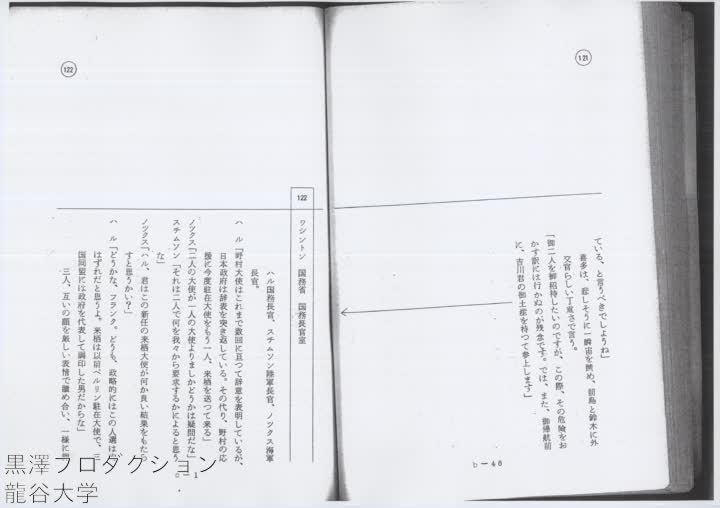 121
ている、と言うべきでしようね」
喜多は、悲しそうに一瞬宙を眺め、前島と鈴木に外
交官らしい丁重さで言う。
「御二人を御招待したいのですが、この際、その危険をお
かす訳には行かぬのが残念です。では、また、御帰航前
に、吉川君の御土産を持つて参上します」
b－46
122
122
ワシントン 国務省 国務長官室
ハル国務長官、スチムソン陸軍長官、ノツクス海軍
長官。
ハル「野村大使はこれまで数回に亘つて辞意を表明しているが、
日本政府は辞表を突き返している。その代り、野村の応
援に今度駐在大使をもう一人、来栖を送つて来る」
ノツクス「二人の大使が一人の大使よりましかどうかは疑問だな」
スチムソン「それは二人で何を我々から要求するかによると思う
な」
ノツクス「ハル、君はこの新任の来栖大使が何か良い結果をもたら
すと思うかい？」
ハル「どうかな、フランク。どうも、政略的にはこの人選は
はずれだと思うよ。来栖は以前ベルリン駐在大使で、三
国同盟には政府を代表して調印した男だからな」
三人、互いの顔を厳しい表情で眺め合い、一様に
c－1
黒澤プロダクション
龍谷大学